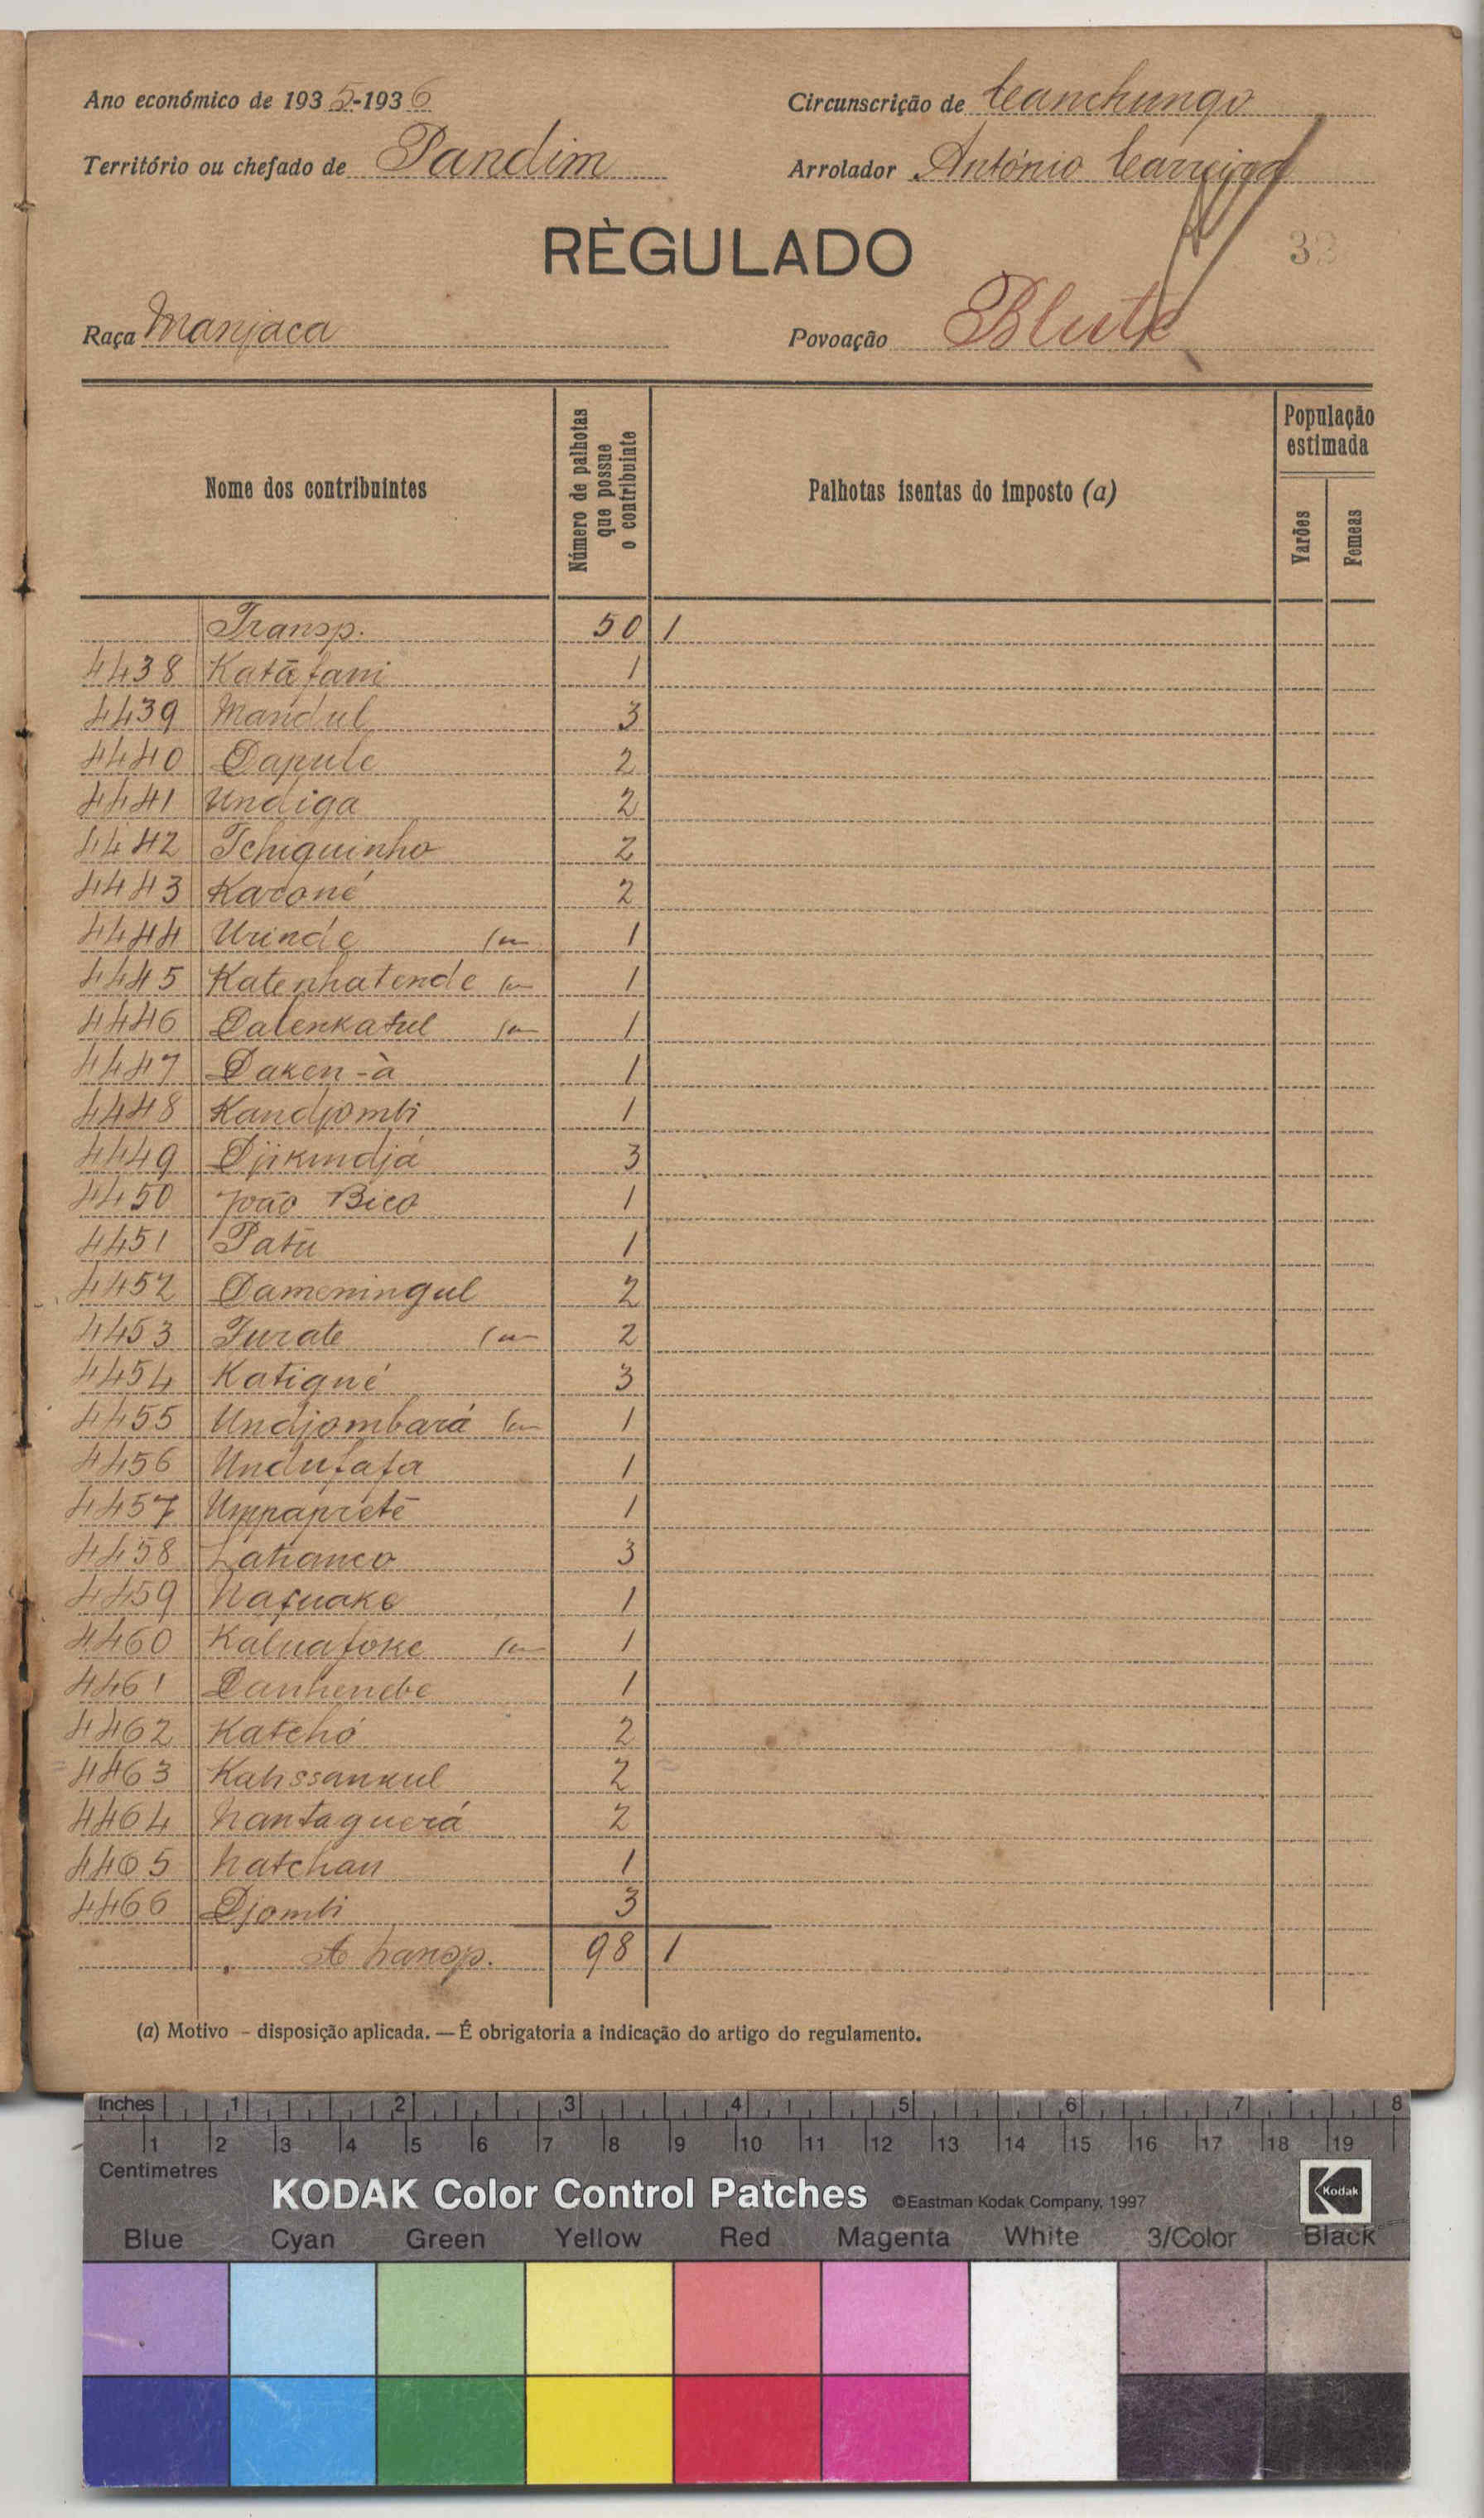 Ano económico de 1935-1936
Circunscrição de Canchungo
Território ou chefado de Pandim
Arrolador António Carreira
RÈGULADO
Raça Manjaca
Povoação
Nome dos contribuintes
Número de palhotas que possue o contribuinte
Palhotas isentas do imposto (a)
População estimada
Varões
Femeas
Transp. 50 1
4438 Katãfani 1
4439 Mandul 3
4440 Dapule 2
4441 Undiga 2
4442 Tchiquinho 2
4443 Karoné 2
4444 Urinde 1
4445 Katenhatende 1
4446 Dalenkatul 1
4447 Daken-à 1
4448 Kandjombi 1
4449 Djikindjá 3
4450 João Bico 1
4451 Patu 1
4452 Dameningul 2
4453 Jurate 2
4454 Katigné 3
4455 Undjombará 1
4456 Undufafa 1
4457 Umpaprété 1
4458 3
4459 Nafuake 1
4460 Kaluafoke 1
4461 Danhenebe 1
4462 Katchó 2
4463 Kahssankul 2
4464 Nantaguerá 2
4465 Natchan 1
4466 Djombi 3
A transp. 98 1
(a) Motivo – disposição aplicada. — É obrigatoria a indicação do artigo do regulamento.
Inches 1 2 3 4 5 6 7 8
1 2 3 4 5 6 7 8 9 10 11 12 13 14 15 16 17 18 19
Centimetres
KODAK Color Control Patches ©Eastman Kodak Company, 1997 Kodak
Blue Cyan Green Yellow Red Magenta White 3/Color Black